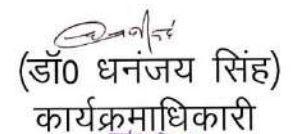 (डॉ0 धनंजय सिंह)
कार्यक्रमाधिकारी